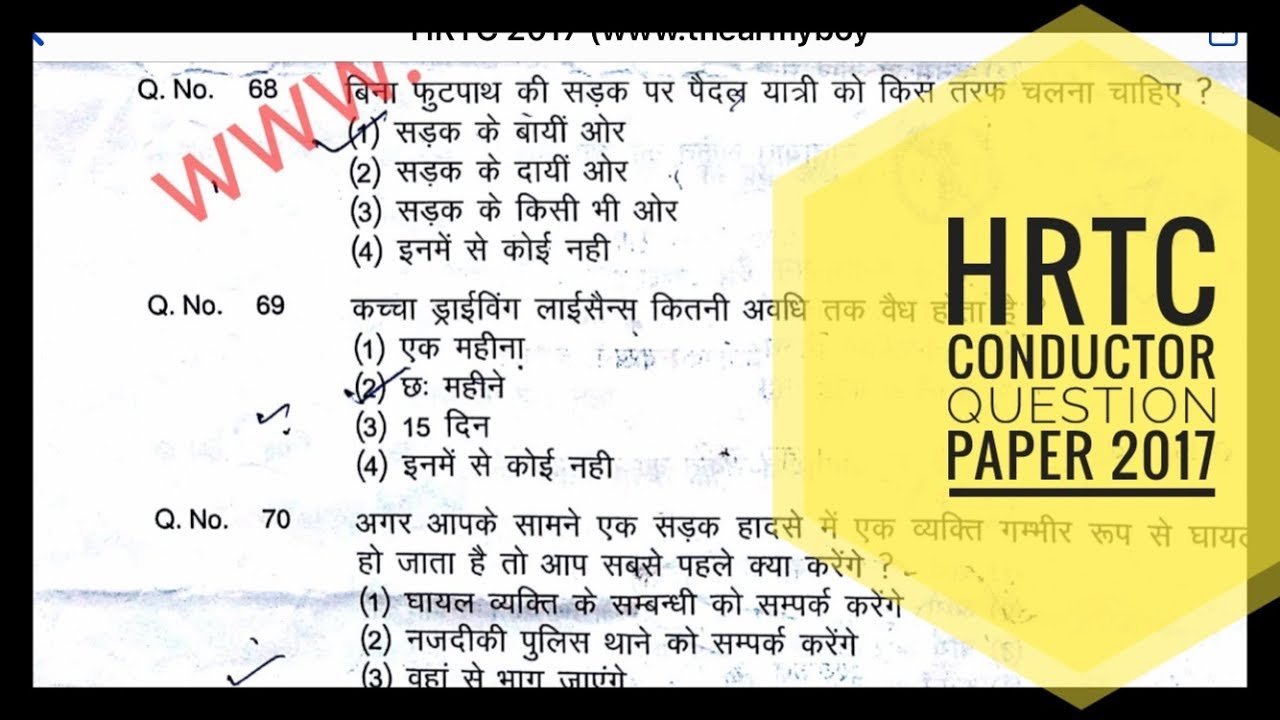 HRTC 2017 (www.thearmyboy
www.
Q. No. 68 बिना फुटपाथ की सड़क पर पैदल यात्री को किस तरफ चलना चाहिए ?
(1) सड़क के बायीं ओर
(2) सड़क के दायीं ओर
(3) सड़क के किसी भी ओर
(4) इनमें से कोई नही
Q. No. 69 कच्चा ड्राईविंग लाईसैन्स कितनी अवधि तक वैध होता है ?
(1) एक महीना
(2) छः महीने
(3) 15 दिन
(4) इनमें से कोई नही
Q. No. 70 अगर आपके सामने एक सड़क हादसे में एक व्यक्ति गम्भीर रूप से घायल
हो जाता है तो आप सबसे पहले क्या करेंगे ?
(1) घायल व्यक्ति के सम्बन्धी को सम्पर्क करेंगे
(2) नजदीकी पुलिस थाने को सम्पर्क करेंगे
(3) वहां से भाग जाएंगे
HRTC
CONDUCTOR
QUESTION
PAPER 2017